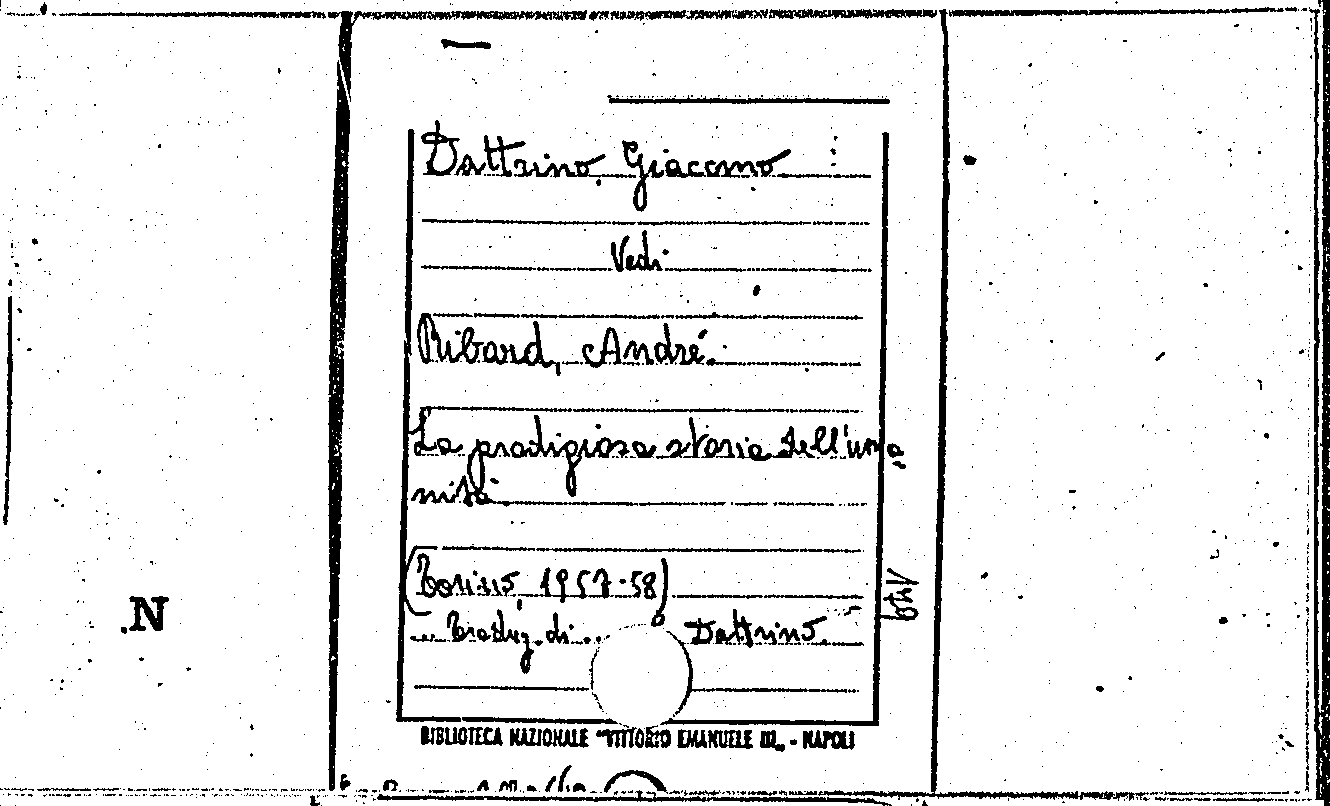 Dattrino, Giacomo
Vedi
Ribard, André.
La prodigiosa storia dell'uma
nità.
(Torino, 1957-58)
... Traduz. di ... Dattrino.
N
BIBLIOTECA NAZIONALE "VITTORIO EMANUELE III„ - NAPOLI